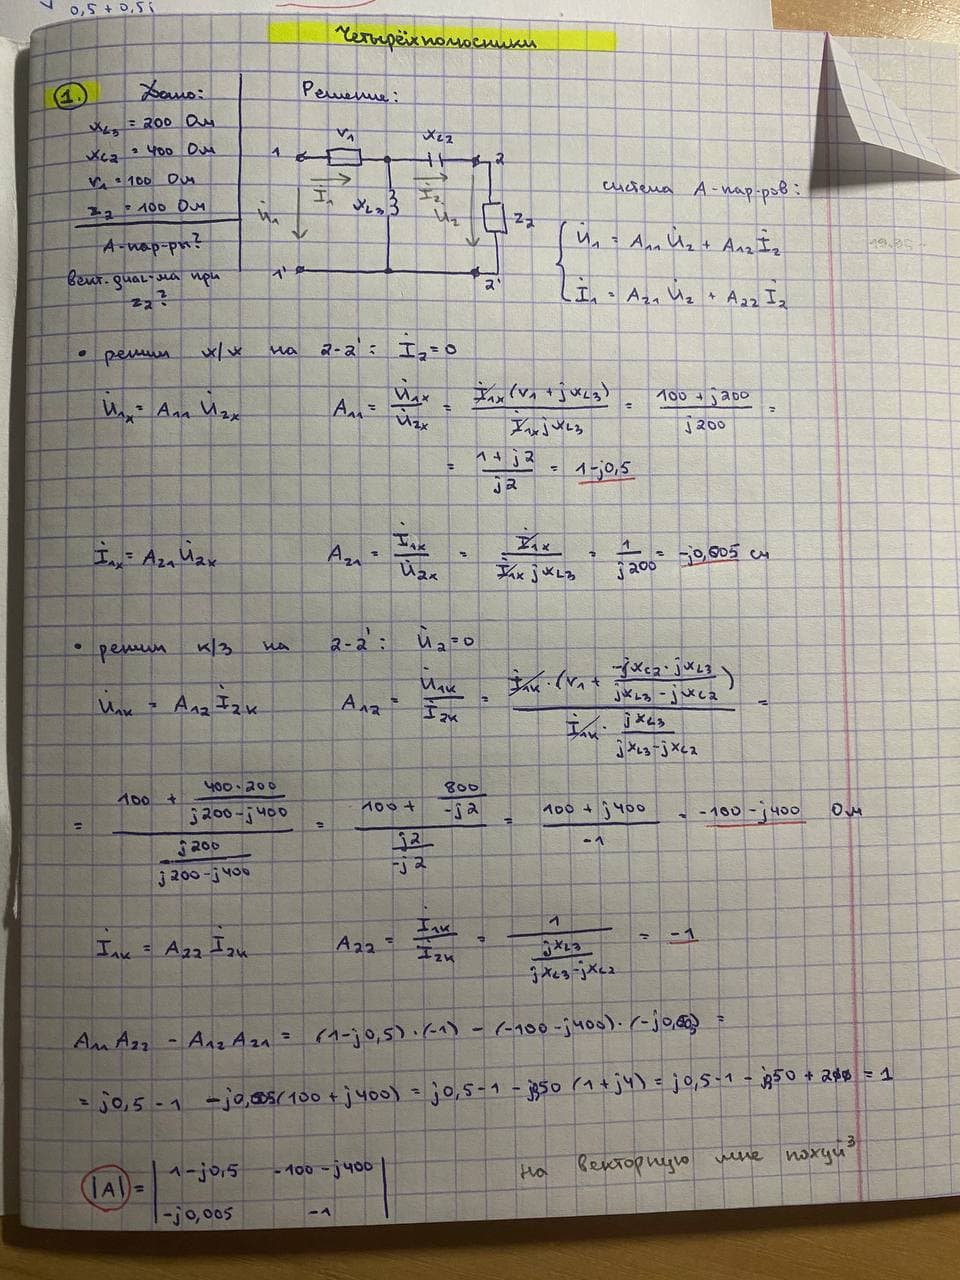 0,5 + 0,5i
Четырёхполюсники
1. Дано:
Решение:
x_L3 = 200 Ом
x_C2 = 400 Ом
r_1 = 100 Ом
z_2 = 100 Ом
А-пар-ры?
вект. диаг-ма при
z_2?
1
r_1
x_C2
2
İ_1
x_L3
İ_2
U̇_1
U̇_2
z_2
1'
2'
система А-пар-ров:
U̇_1 = A_11 U̇_2 + A_12 İ_2
İ_1 = A_21 U̇_2 + A_22 İ_2
• режим х/х на 2-2': İ_2 = 0
U̇_1x = A_11 U̇_2x A_11 = U̇_1x / U̇_2x = İ_1x (r_1 + jx_L3) / İ_1x jx_L3 = 100 + j200 / j200 =
= 1 + j2 / j2 = 1-j0,5
İ_1x = A_21 U̇_2x A_21 = İ_1x / U̇_2x = İ_1x / İ_1x jx_L3 = 1 / j200 = -j0,005 см
• режим к/з на 2-2': U̇_2 = 0
U̇_1к = A_12 İ_2к A_12 = U̇_1к / İ_2к = İ_1к · (r_1 + -jx_C2 · jx_L3 / jx_L3 - jx_C2) / İ_1к · jx_L3 / jx_L3 - jx_C2 =
= 100 + 400·200 / j200-j400 / j200 / j200-j400 = 100 + 800 / -j2 / j2 / -j2 = 100 + j400 / -1 = -100 - j400 Ом
İ_1к = A_22 İ_2к A_22 = İ_1к / İ_2к = 1 / jx_L3 / jx_L3 - jx_C2 = -1
A_11 A_22 - A_12 A_21 = (1-j0,5)·(-1) - (-100-j400)·(-j0,005) =
= j0,5 - 1 - j0,005(100 + j400) = j0,5 - 1 - j50 (1 + j4) = j0,5 - 1 - j50 + 200 = 1
|A| = | 1-j0,5 -100-j400 |
-j0,005 -1
на векторную мне похуй³